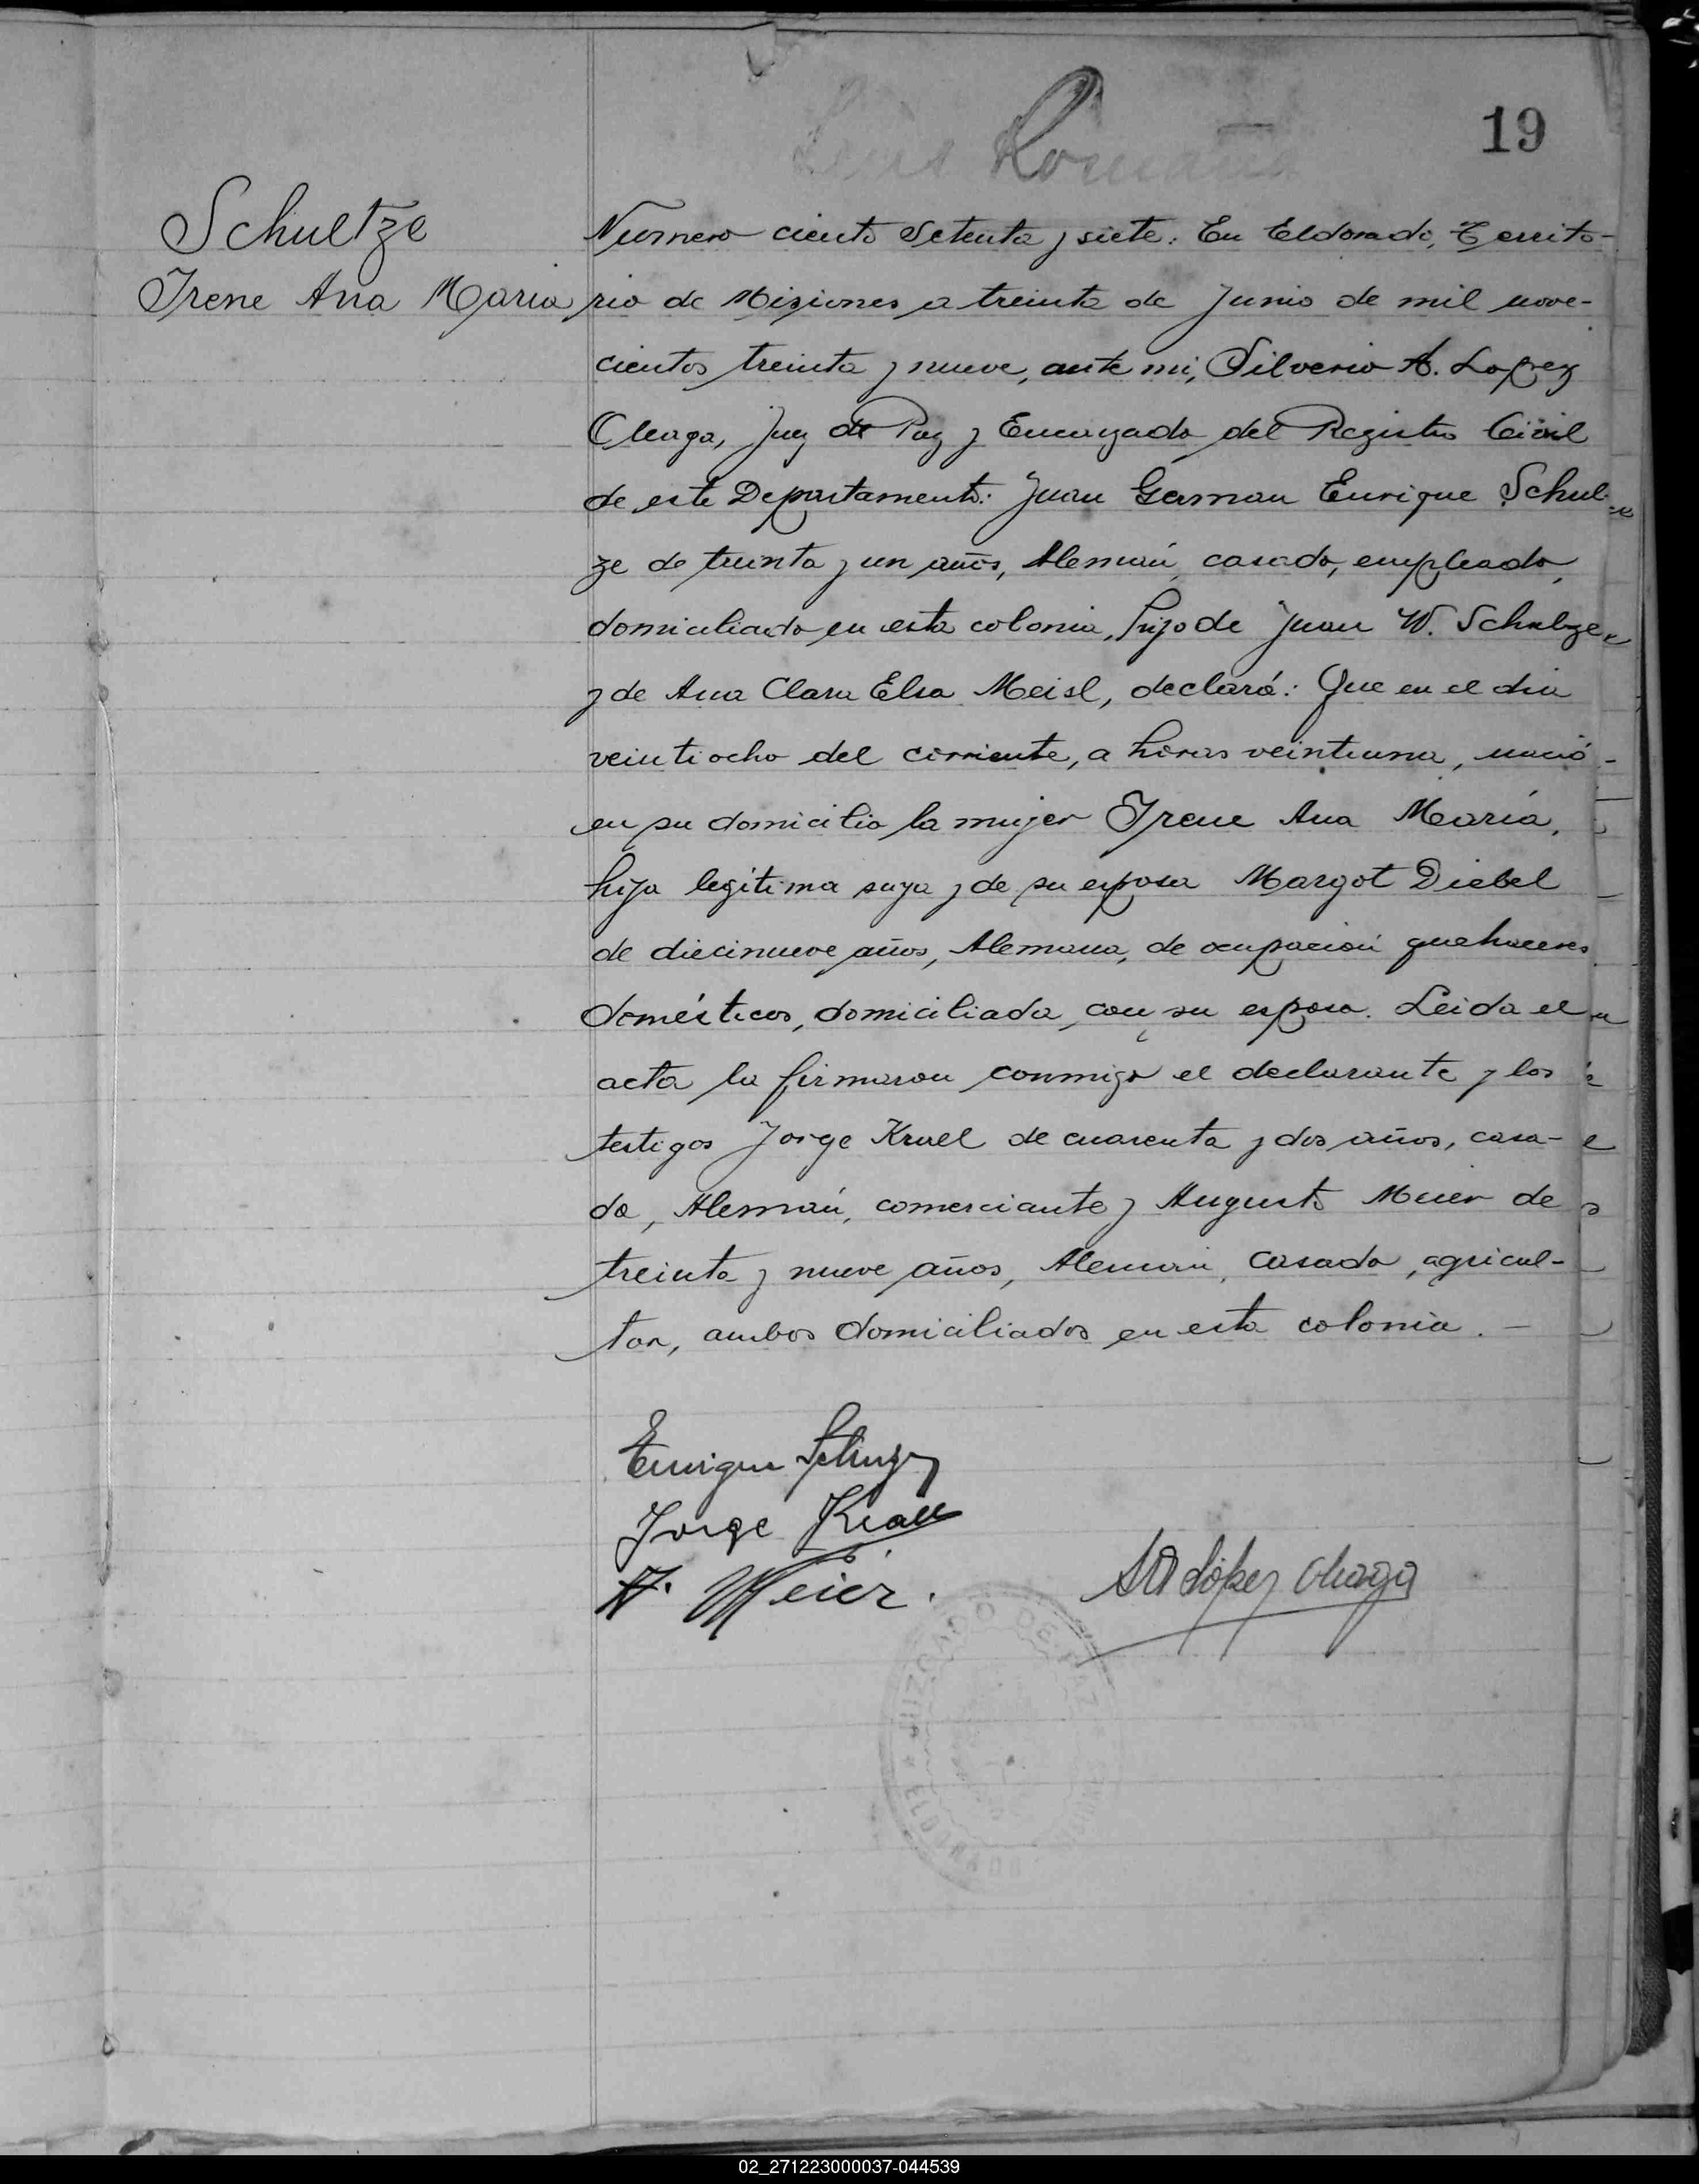 Luis Romaña
19
Schultze
Irene Ana Maria
Numero ciento setenta y siete: En Eldorado, Territo-
rio de Misiones a treinta de Junio de mil nove-
cientos treinta y nueve, ante mi, Silverio A. Lopez
Oleaga, Juez de Paz y Encargado del Registro Civil
de este Departamento: Juan German Enrique Schul-
ze de treinta y un años, Alemán, casado, empleado,
domiciliado en esta colonia, hijo de Juan W. Schulze
y de Ana Clara Elsa Meisl, declaró: Que en el dia
veintiocho del corriente, a horas veintiuna, nació
en su domicilio la mujer Irene Ana María,
hija legítima suya y de su esposa Margot Diebel
de diecinueve años, Alemana, de ocupación quehaceres
domésticos, domiciliada con su esposo. Leida el
acta la firmaron conmigo el declarante y los
testigos Jorge Krall de cuarenta y dos años, casa-
do, Alemán, comerciante y Augusto Meier de
treinta y nueve años, Alemán, casado, agricul-
tor, ambos domiciliados en esta colonia. -
Enrique
Jorge Krall
A. Meier.
SA López Oleaga
JUZGADO DE PAZ
ELDORADO
02_271223000037-044539